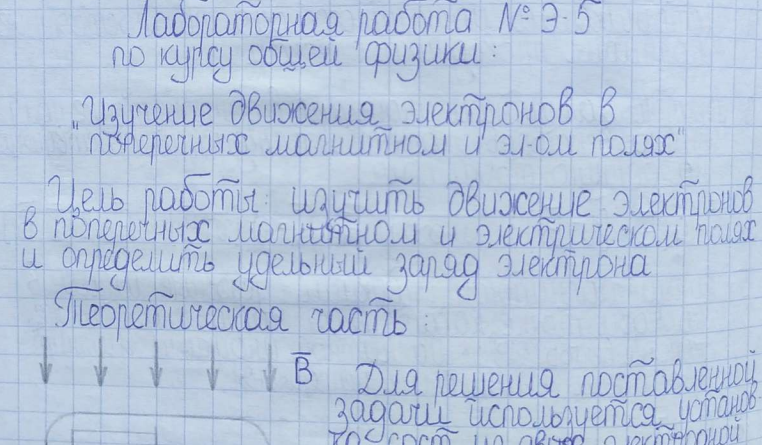 Лабораторная работа № Э-5
по курсу общей физики:
„Изучение движения электронов в
поперечных магнитном и эл-ом полях"
Цель работы: изучить движение электронов
в поперечных магнитном и электрическом полях
и определить удельный заряд электрона
Теоретическая часть:
B̅
Для решения поставленной
задачи используется установ-
ка, сост. из двух электродной